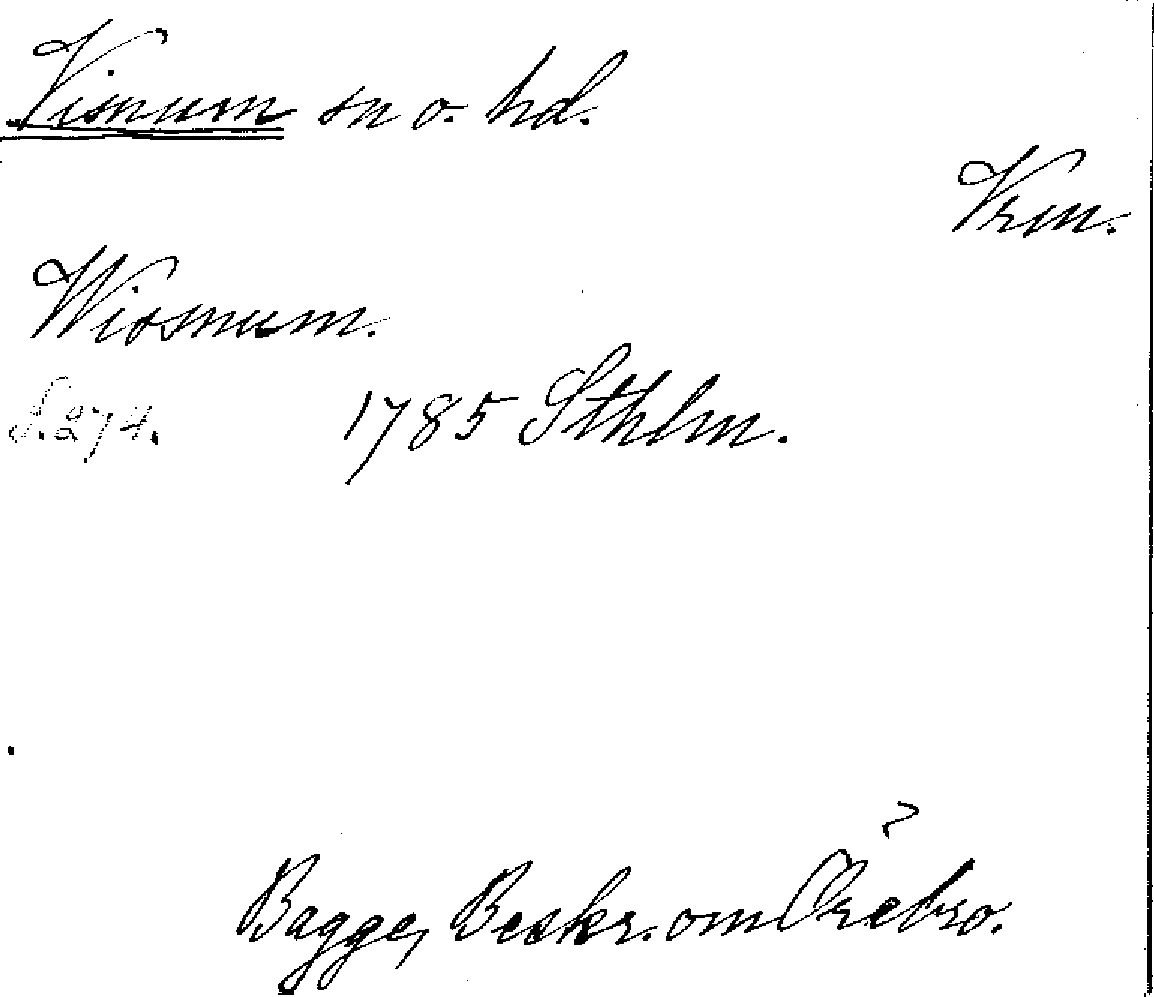 Visnum sn o. hd.
Vrm.
Wissnum.
S. 274. 1785 Sthlm.
Bagge, Beskr. om Örebro.